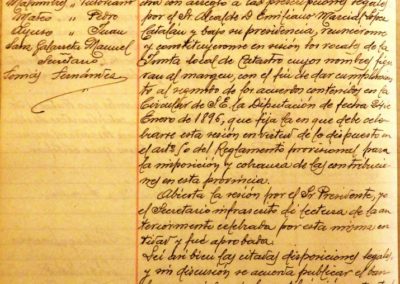 Mateo " Pedro
Ayuso " Juan
Sanz Galarreta Manuel
Secretario
Tomás Fernández
da con arreglo a las prescripciones legales
por el Sr. Alcalde D. Emiliano Marcial López
Catalau y bajo su presidencia, reunieronse
y constituyeronse en sesión los vocales de la
Junta local de Catastro cuyos nombres figu
ran al margen, con el fin de dar cumplimiento
al número de los acuerdos contenidos en la
Circular de S.E. la Diputación de fecha 24 de
Enero de 1896, que fija la en que debe cele
brarse esta sesión en virtud de lo dispuesto en
el art.º 60 del Reglamento provisional para
la imposición y cobranza de las contribucio
nes en esta provincia.
Abierta la sesión por el Sr. Presidente, yo
el Secretario infrascrito dí lectura de la an
teriormente celebrada por esta misma en
tidad y fué aprobada.
Leí así bien las citadas disposiciones legales,
y sin discusión se acuerda publicar el ban